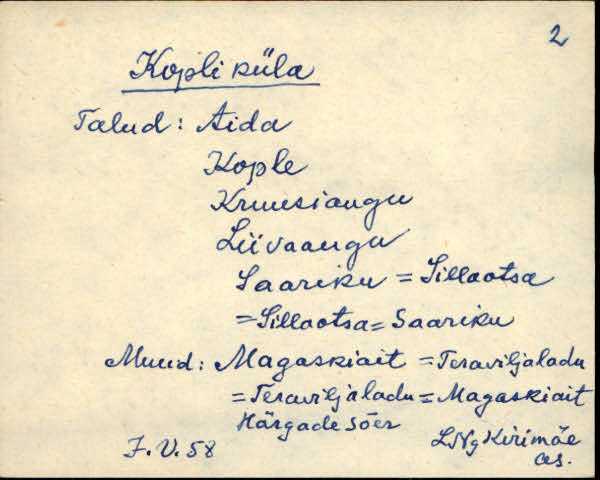 2
Kopli küla
Talud: Aida
Kople
Kruusiaugu
Liivaaugu
Saariku = Sillaotsa
= Sillaotsa = Saariku
Muud: Magaskiait = Teraviljaladu
= Teraviljaladu = Magaskiait
Härgade sõer
LNg Kirimäe